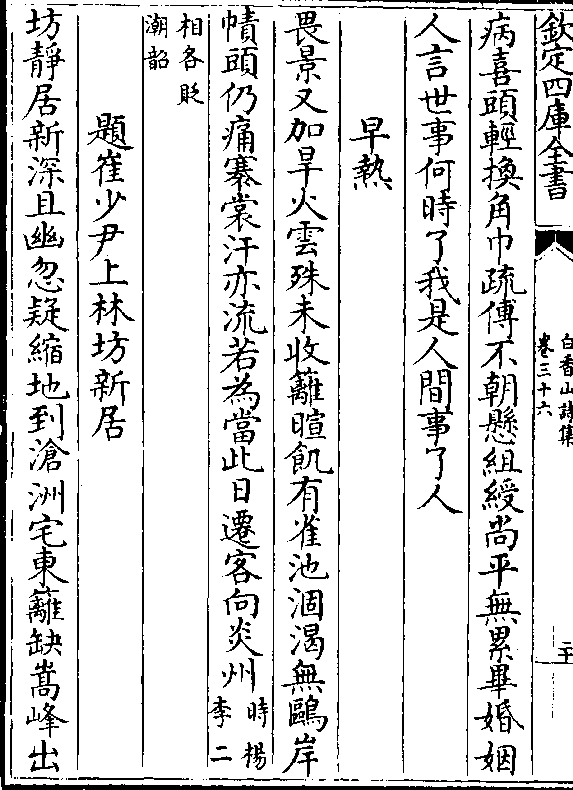 欽定四庫全書
白香山詩集
卷三十六
二十
病喜頭輕換角巾疏傅不朝懸組綬尚平無累畢婚姻
人言世事何時了我是人間事了人
早熱
畏景又加旱火雲殊未收籬暄飢有雀池涸渴無鷗岸
幘頭仍痛褰裳汗亦流若為當此日遷客向炎州時楊
李二
相各貶
潮韶
題崔少尹上林坊新居
坊靜居新深且幽忽疑縮地到滄洲宅東籬缺嵩峰出